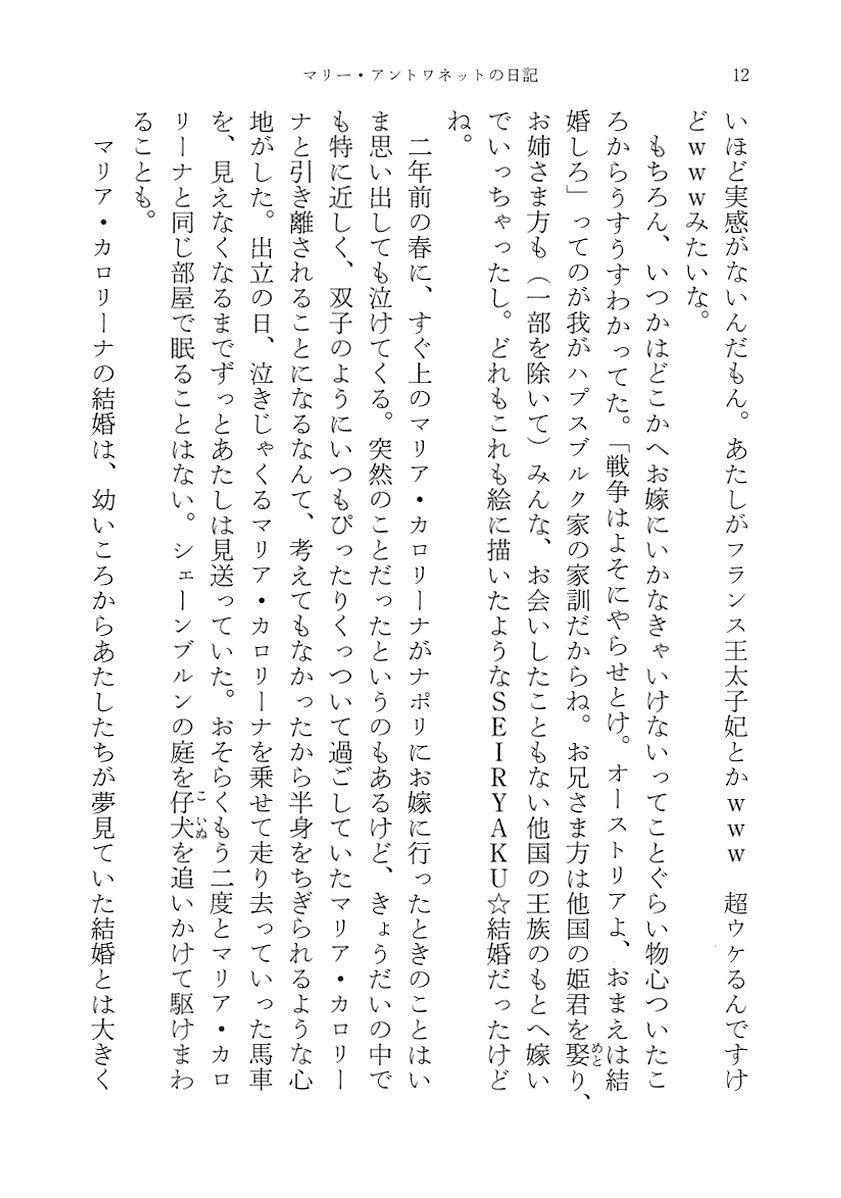 マリー・アントワネットの日記
12
いほど実感がないんだもん。あたしがフランス王太子妃とかｗｗｗ　超ウケるんですけ
どｗｗｗみたいな。
　もちろん、いつかはどこかへお嫁にいかなきゃいけないってことぐらい物心ついたこ
ろからうすうすわかってた。「戦争はよそにやらせとけ。オーストリアよ、おまえは結
婚しろ」ってのが我がハプスブルク家の家訓だからね。お兄さま方は他国の姫君を娶り、
めと
お姉さま方も（一部を除いて）みんな、お会いしたこともない他国の王族のもとへ嫁い
でいっちゃったし。どれもこれも絵に描いたようなＳＥＩＲＹＡＫＵ☆結婚だったけど
ね。
　二年前の春に、すぐ上のマリア・カロリーナがナポリにお嫁に行ったときのことはい
ま思い出しても泣けてくる。突然のことだったというのもあるけど、きょうだいの中で
も特に近しく、双子のようにいつもぴったりくっついて過ごしていたマリア・カロリー
ナと引き離されることになるなんて、考えてもなかったから半身をちぎられるような心
地がした。出立の日、泣きじゃくるマリア・カロリーナを乗せて走り去っていった馬車
を、見えなくなるまでずっとあたしは見送っていた。おそらくもう二度とマリア・カロ
リーナと同じ部屋で眠ることはない。シェーンブルンの庭を仔犬を追いかけて駆けまわ
こいぬ
ることも。
　マリア・カロリーナの結婚は、幼いころからあたしたちが夢見ていた結婚とは大きく